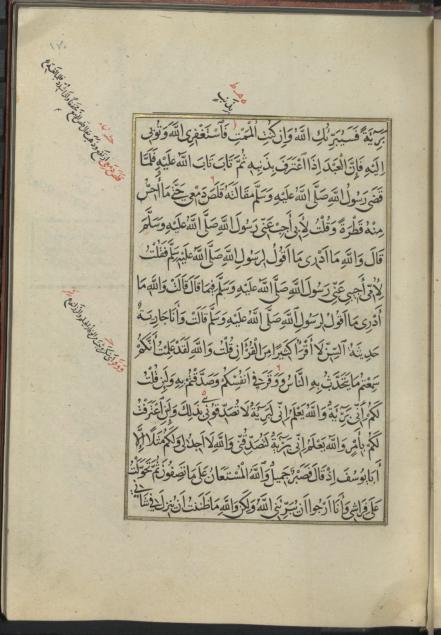 بريئة فسيبرئك الله وان كنت الممت فاستغفرى الله وتوبى
اليه فان العبد اذا اعترف بذنبه ثم تاب تاب الله عليه فلما
قضى رسول الله صلى الله عليه وسلم مقالته قلص دمعى حتى ما احس
منه قطرة وقلت لابى اجب عنى رسول الله صلى الله عليه وسلم
قال والله ما ادرى ما اقول لرسول الله صلى الله عليه وسلم فقلت
لامى اجيبى عنى رسول الله صلى الله عليه وسلم فيما قال قالت والله ما
ادرى ما اقول لرسول الله صلى الله عليه وسلم قالت وانا جارية
حديثة السن لا اقرا كثيرا من القرآن فقلت والله لقد علمت انكم
سمعتم ما يتحدث به الناس ووقر فى انفسكم وصدقتم به ولئن قلت
لكم انى بريئة والله يعلم انى لبريئة لا تصدقونى بذلك ولئن اعترفت
لكم بامر والله يعلم انى بريئة لتصدقنى والله لا اجد لى ولكم مثلا الا
ابا يوسف اذ قال فصبر جميل والله المستعان على ما تصفون ثم تحولت
على فراشى وانا ارجوا ان يبرئنى الله ولكن والله ما ظننت ان ينزل فى شانى